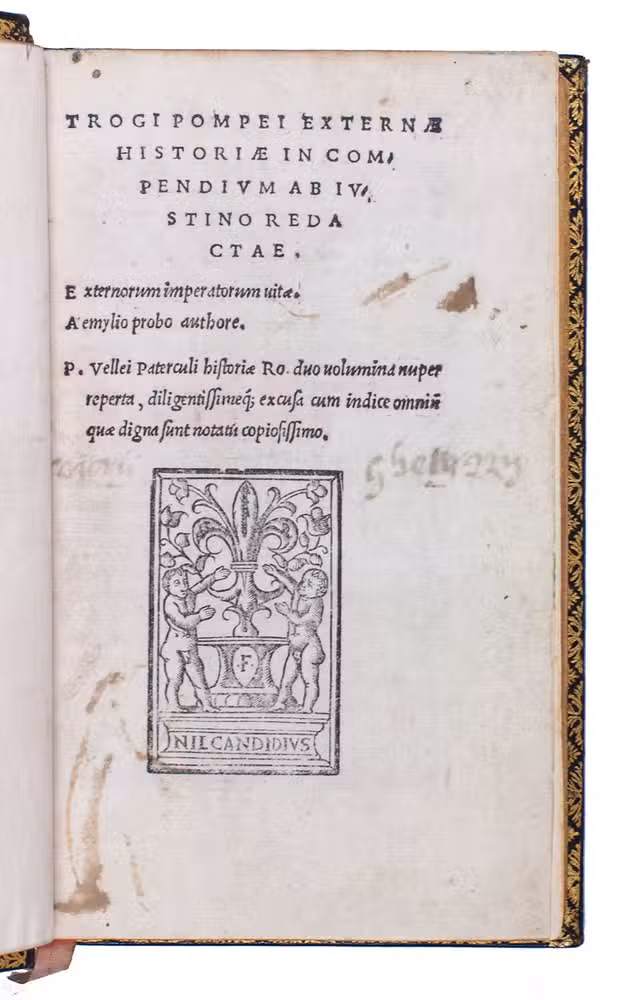 TROGI POMPEI EXTERNÆ
HISTORIÆ IN COM,
PENDIVM AB IV,
STINO REDA
CTAE.
E xternorum imperatorum uitæ.
A emylio probo authore.
P. Vellei Paterculi historiæ Ro. duo uolumina nuper
reperta, diligentissimeq; excusa cum indice omniū
quæ digna sunt notatu copiosissimo.
F.
NIL CANDIDIVS